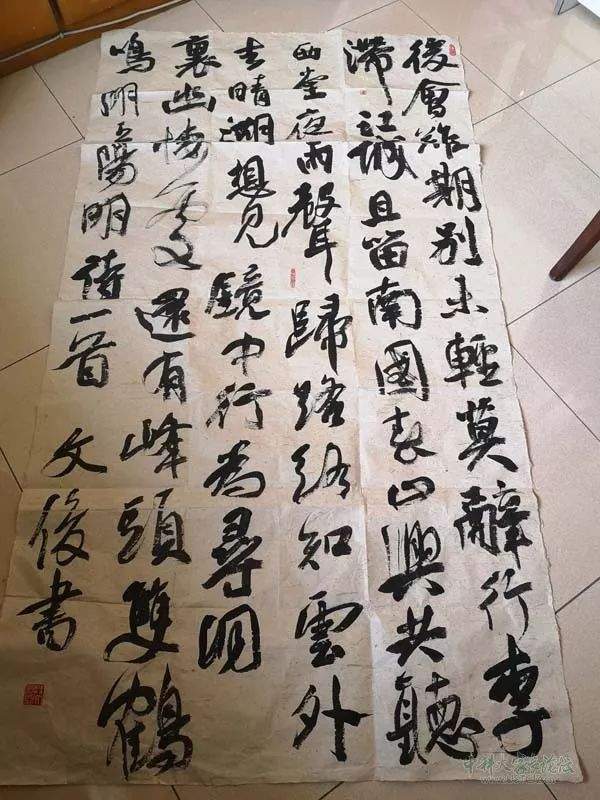 後會難期別未輕莫辭行李
滯江城且留南國春山興共聽
西堂夜雨聲歸路終知雲外
去晴湖想見鏡中行為尋洞
裏幽棲處還有峰頭雙鶴
鳴明王陽明詩一首 文俊書